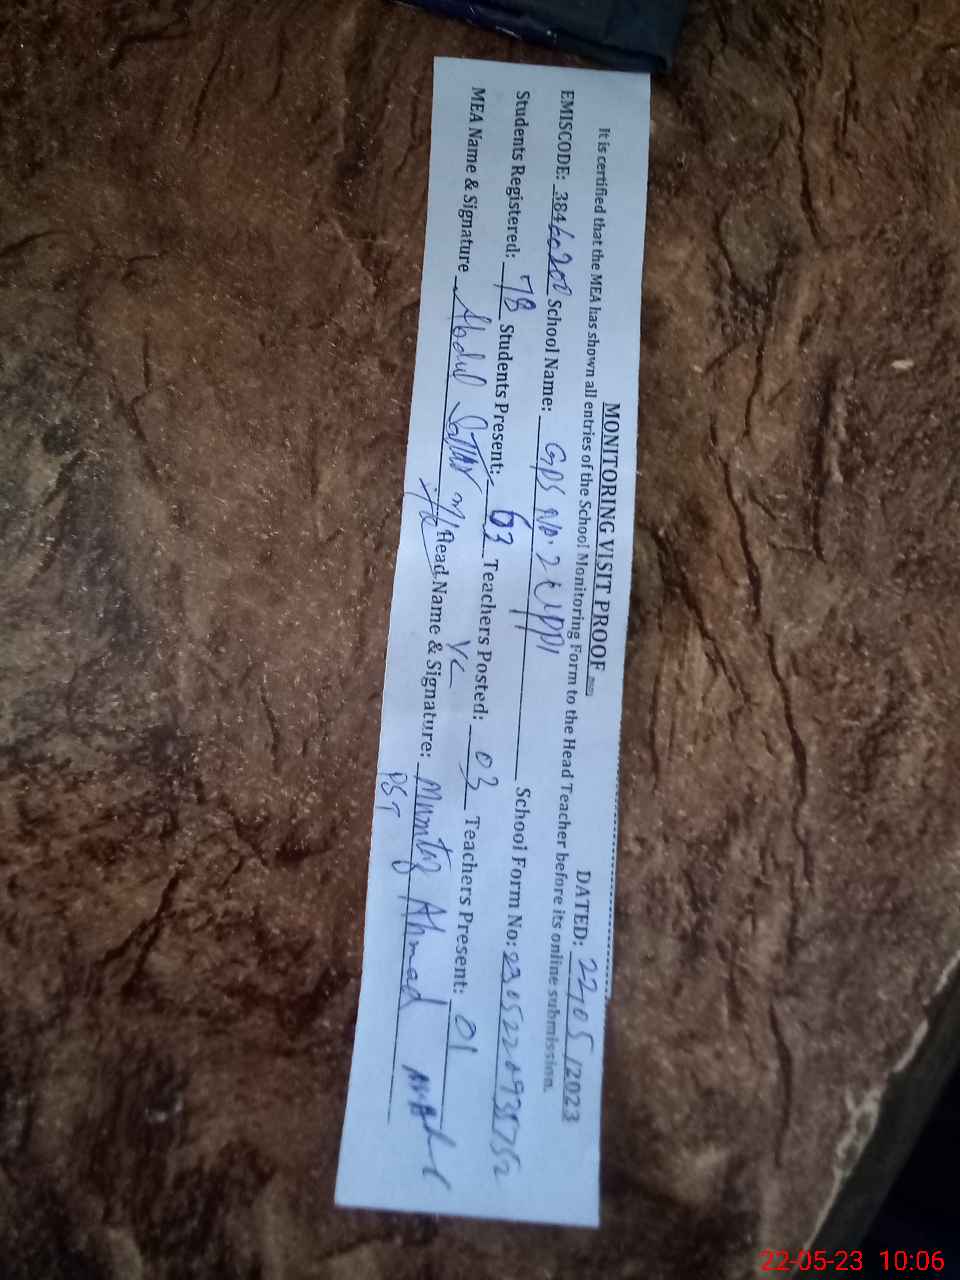 MONITORING VISIT PROOF
DATED: 22/05/2023
It is certified that the MEA has shown all entries of the School Monitoring Form to the Head Teacher before its online submission.
EMISCODE: School Name: GPS No. 2 School Form No:
Students Registered: 78 Students Present: 63 Teachers Posted: 03 Teachers Present: 01
MEA Name & Signature Abdul Sattar Head Name & Signature: Mumtaz Ahmad
PST
22-05-23 10:06